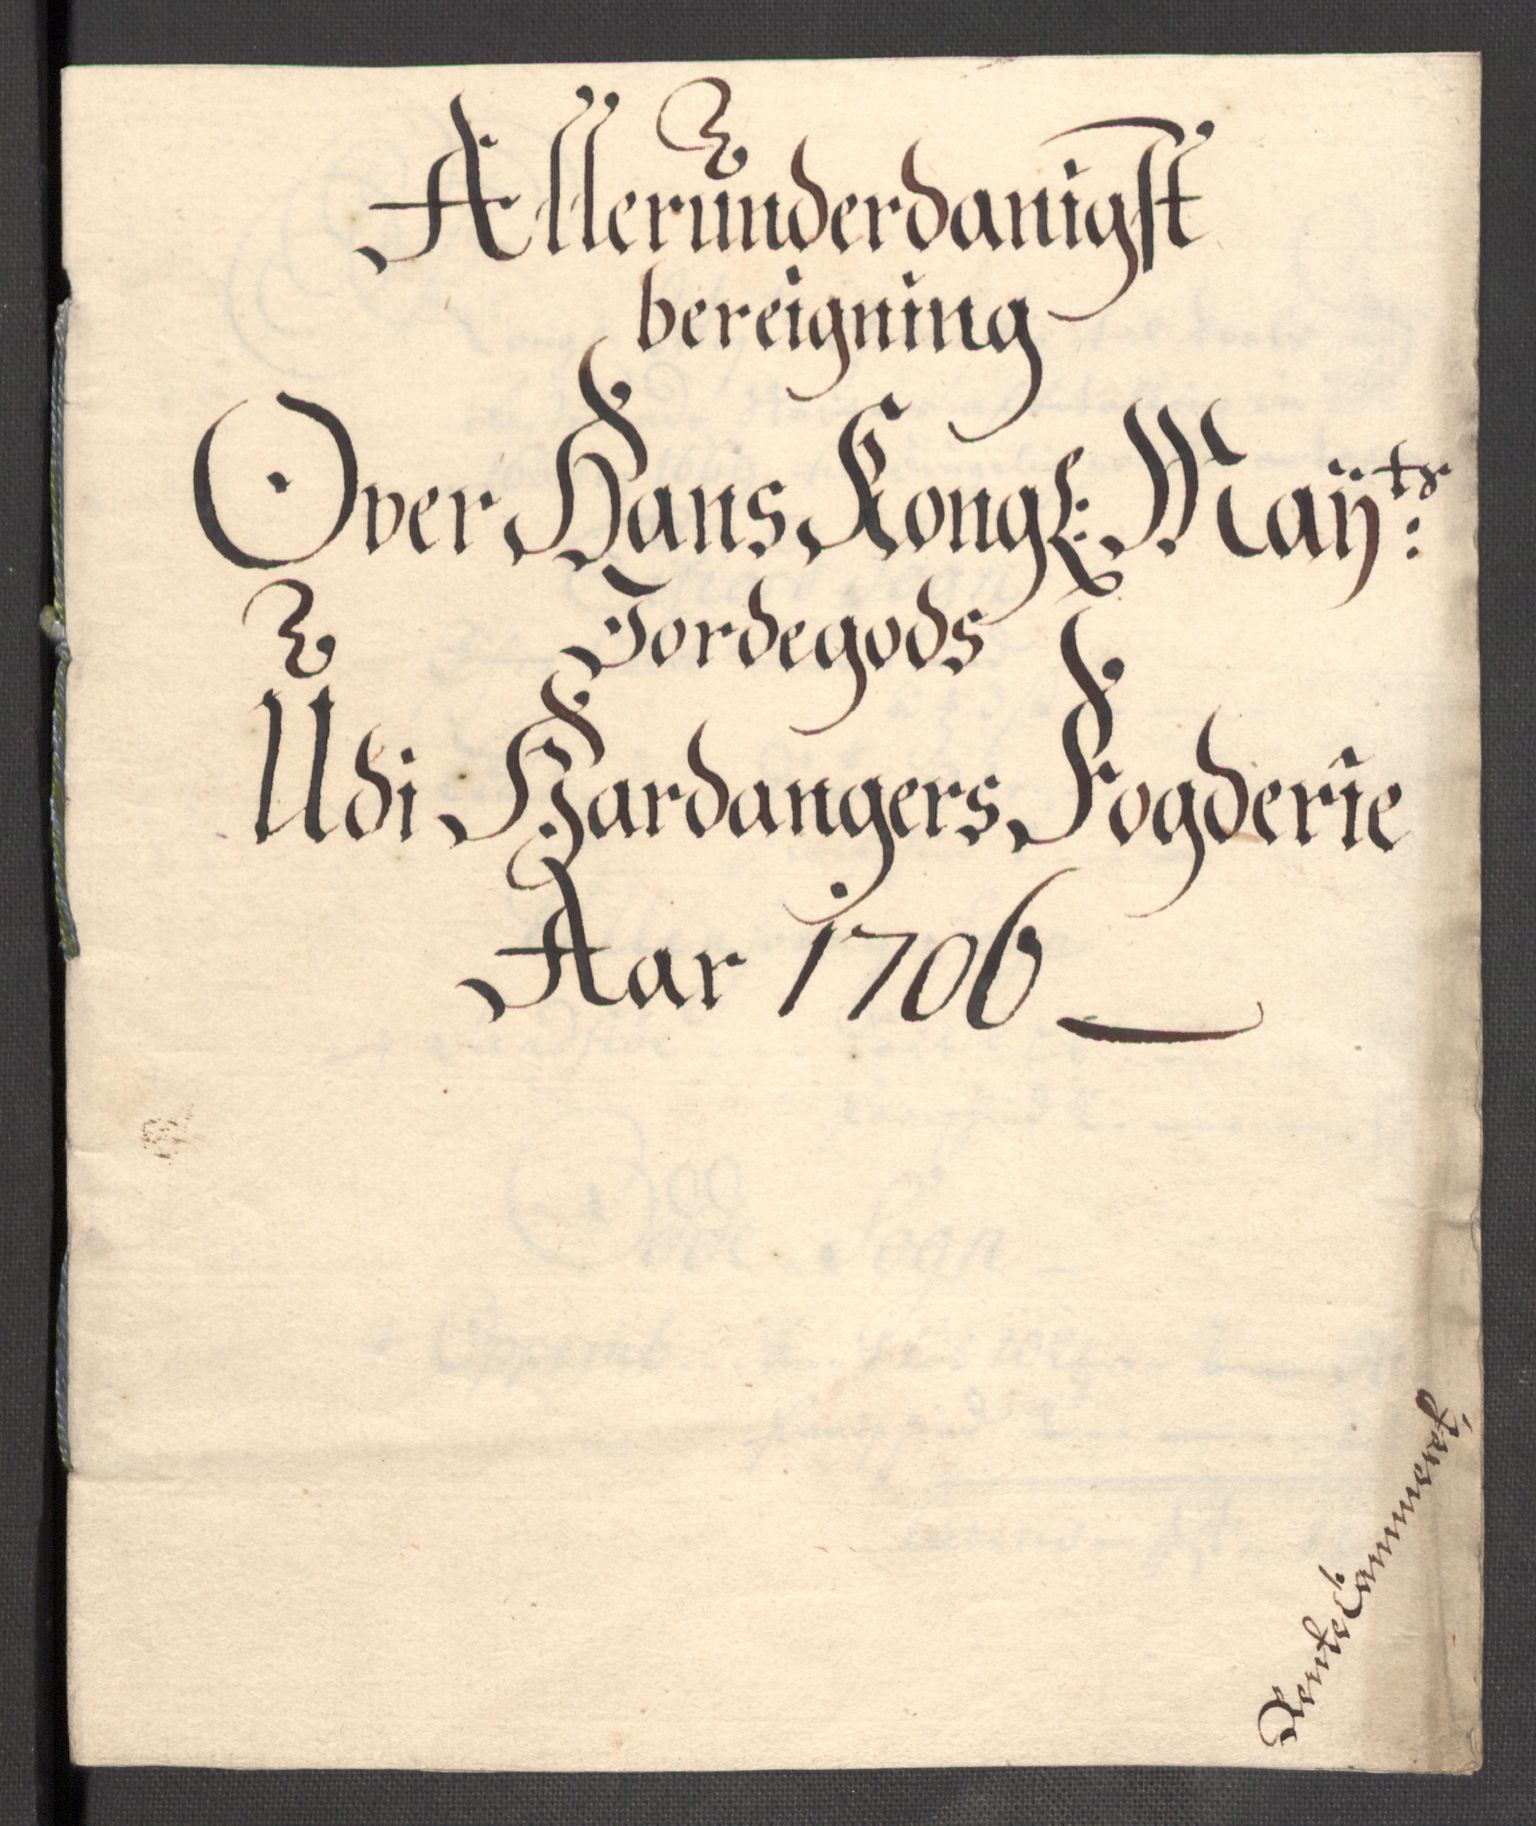 Allerunderdanigst
bereigning
Over Hans Kongl: Maÿtr:
Jordegods
Udi Hardangers Fogderie
Aar 1706
RenteCammeret